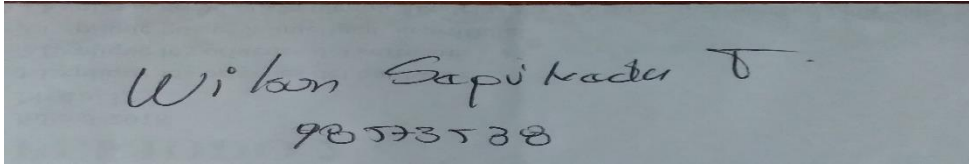 Wilson Sapu Kadu T.
98573538